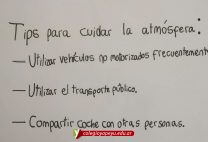 Tips para cuidar la atmósfera:
— Utilizar vehículos no motorizados frecuentemente
— Utilizar el transporte público.
— Compartir coche con otras personas.
colegioyapeyu.edu.ar